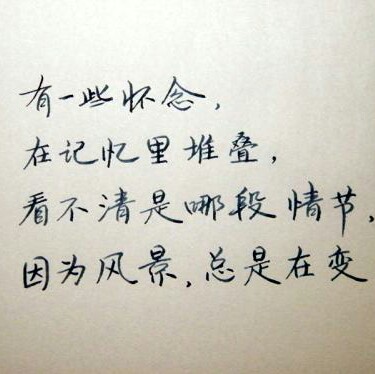 有一些怀念,
在记忆里堆叠,
看不清是哪段情节,
因为风景,总是在变